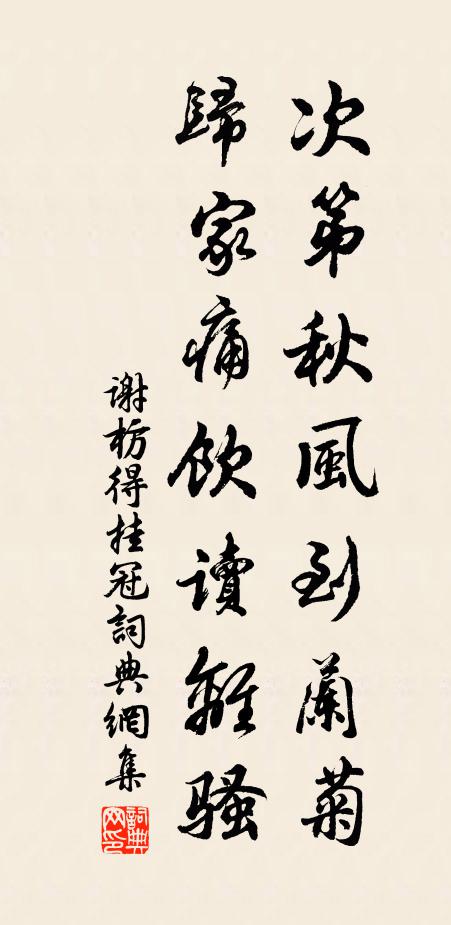 次第秋風到蘭菊
歸家痛飲讀離騷
谢枋得挂冠詞典網集
詞典網印